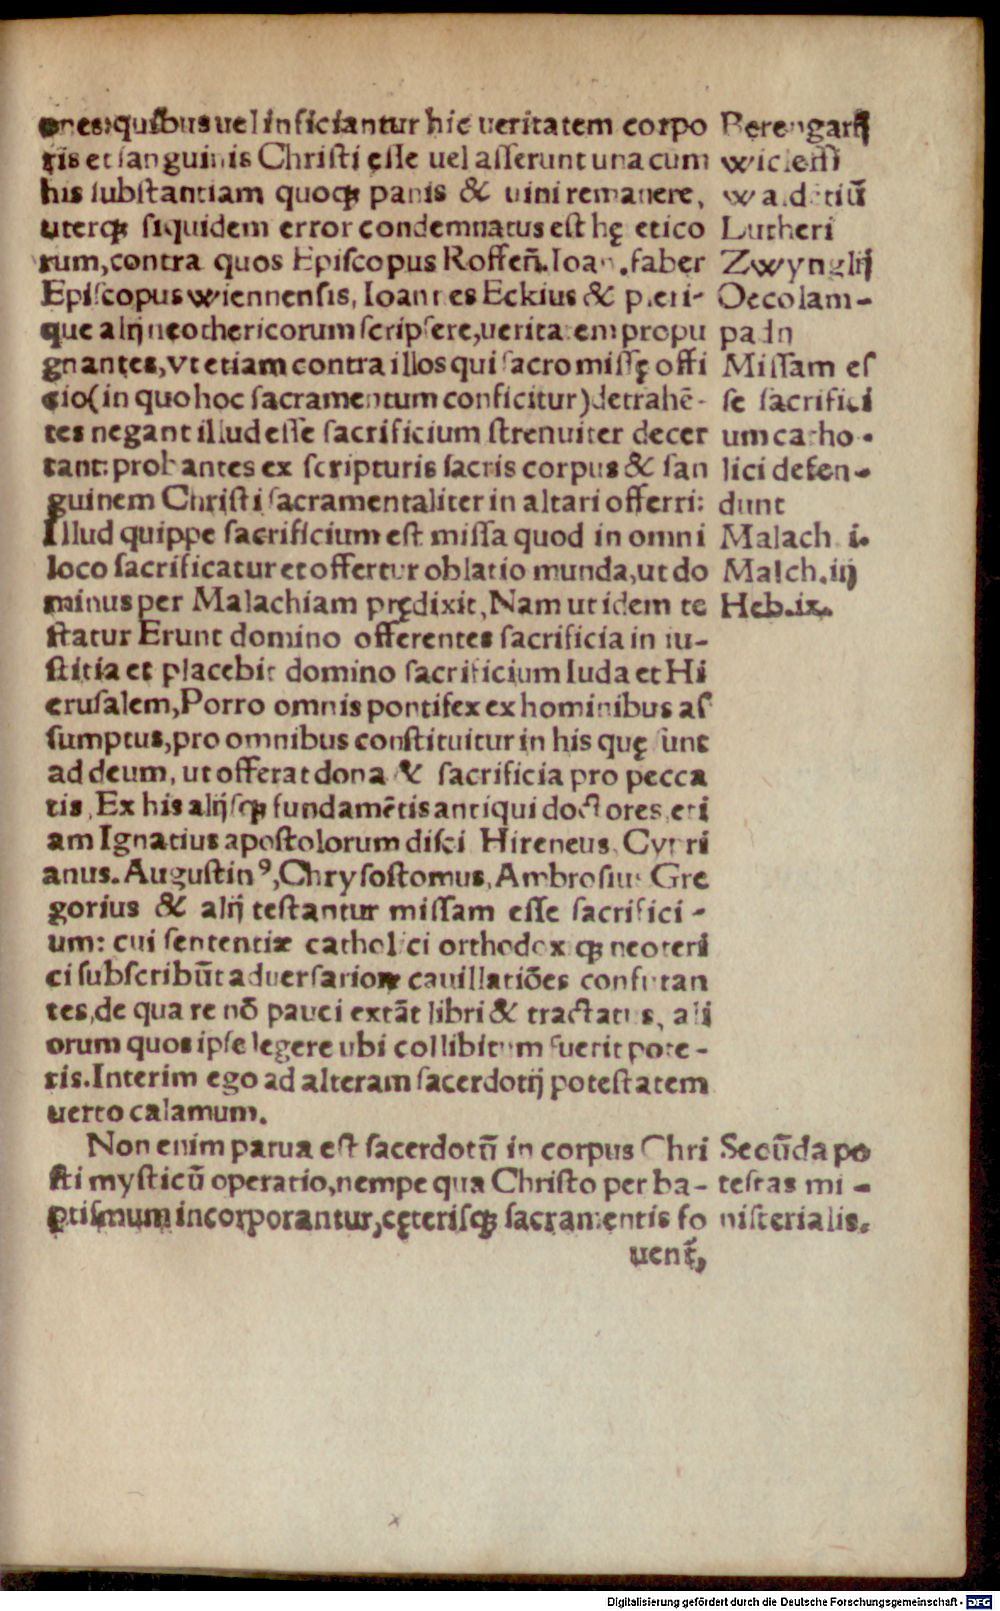 ones: quibus uel inficiantur hic ueritatem corpo
ris et sanguinis Christi ęsse uel asserunt una cum
his substantiam quoqꝫ panis & uini remanere,
uterqꝫ siquidem error condemnatus est hę etico
rum, contra quos Episcopus Roffeñ. Ioan. faber
Episcopus wiennensis, Ioannes Eckius & pleri-
que alij neothericorum scripsere, ueritatem propu
gnantes, vt etiam contra illos qui sacro missę offi
cio (in quo hoc sacramentum conficitur) detrahē-
tes negant illud esse sacrificium strenuiter decer
tant: probantes ex scripturis sacris corpus & san
guinem Christi sacramentaliter in altari offerri:
Illud quippe sacrificium est missa quod in omni
loco sacrificatur et offertur oblatio munda, ut do
minus per Malachiam prędixit, Nam ut idem te
statur Erunt domino offerentes sacrificia in iu-
stitia et placebit domino sacrificium Iuda et Hi
erusalem, Porro omnis pontifex ex hominibus as
sumptus, pro omnibus constituitur in his quę sunt
ad deum, ut offerat dona & sacrificia pro pecca
tis, Ex his alijsqꝫ fundamētis antiqui doctores, eti
am Ignatius apostolorum disci Hireneus, Cypri
anus. Augustinꝰ, Chrysostomus, Ambrosius Gre
gorius & alij testantur missam esse sacrifici-
um: cui sententiæ catholici orthodox qꝫ neoteri
ci subscribūt aduersarioꝝ cauillatiōes confutan
tes, de qua re nō pauci extāt libri & tractatus, ali
orum quos ipse legere ubi collibitum fuerit pote-
ris. Interim ego ad alteram sacerdotij potestatem
uerto calamum.
Non enim parua est sacerdotū in corpus Chri
sti mysticū operatio, nempe qua Christo per ba-
ptismum incorporantur, cęterisqꝫ sacramentis fo
uent᷑,
Berengarij
wicleffi
waldesiū
Lutheri
Zwynglij
Oecolam-
padij
Missam es
se sacrifici
um catho-
lici defen-
dunt
Malach. i.
Malch. iij
Heb. ix.
Secūda po
testas mi-
nisterialis.
Digitalisierung gefördert durch die Deutsche Forschungsgemeinschaft - DFG